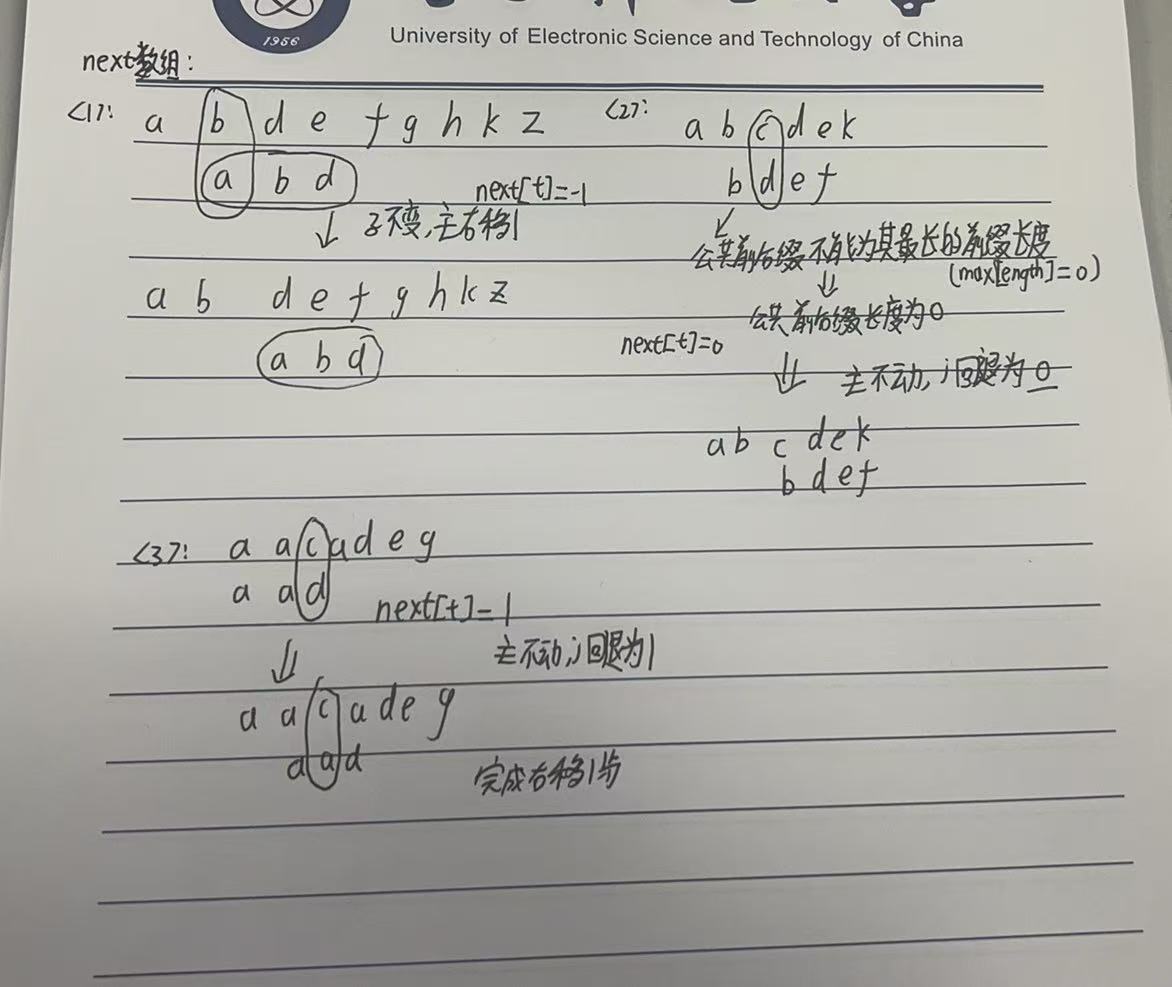 1956
University of Electronic Science and Technology of China
next数组:
<1>: a b d e f g h k z
a b d
next[t]=-1
↓ 子不变,主右移1
a b d e f g h k z
a b d
<2>: a b c d e k
b d e f
↙
公共前后缀不能为其最长的前缀长度
(max[length]=0)
⇓
公共前后缀长度为0
next[t]=0
⇓ 主不动,j回退为0
a b c d e k
b d e f
<3>: a a c a d e g
a a d
next[t]=1
⇓ 主不动,j回退为1
a a c a d e g
a a d
完成右移1步